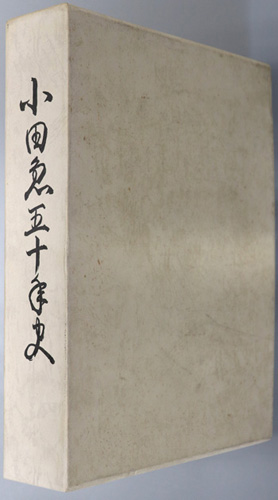 小田急五十年史